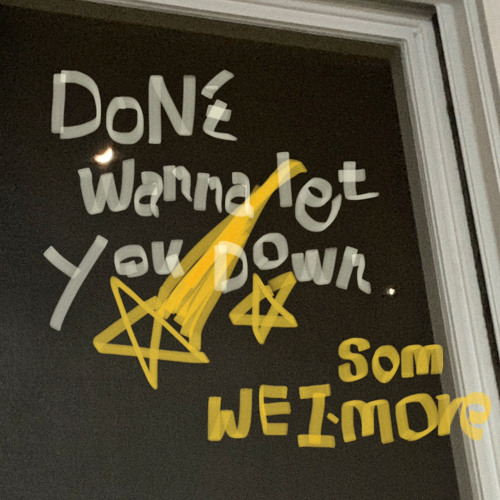 DONÉ
Wanna let
You Down
Som
WEI-more